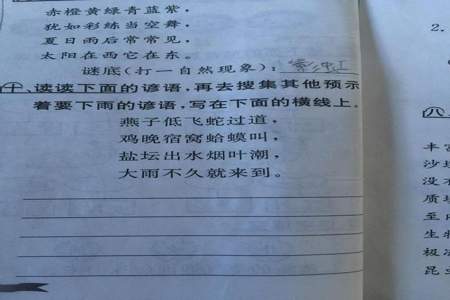 赤橙黄绿青蓝紫，
犹如彩练当空舞，
夏日雨后常常见，
太阳在西它在东。
谜底(打一自然现象)：彩虹
十、读读下面的谚语，再去搜集其他预示
着要下雨的谚语，写在下面的横线上。
燕子低飞蛇过道，
鸡晚宿窝蛤蟆叫，
盐坛出水烟叶潮，
大雨不久就来到。
2.
八
丰富
沙
没
质
至
生
极
昆